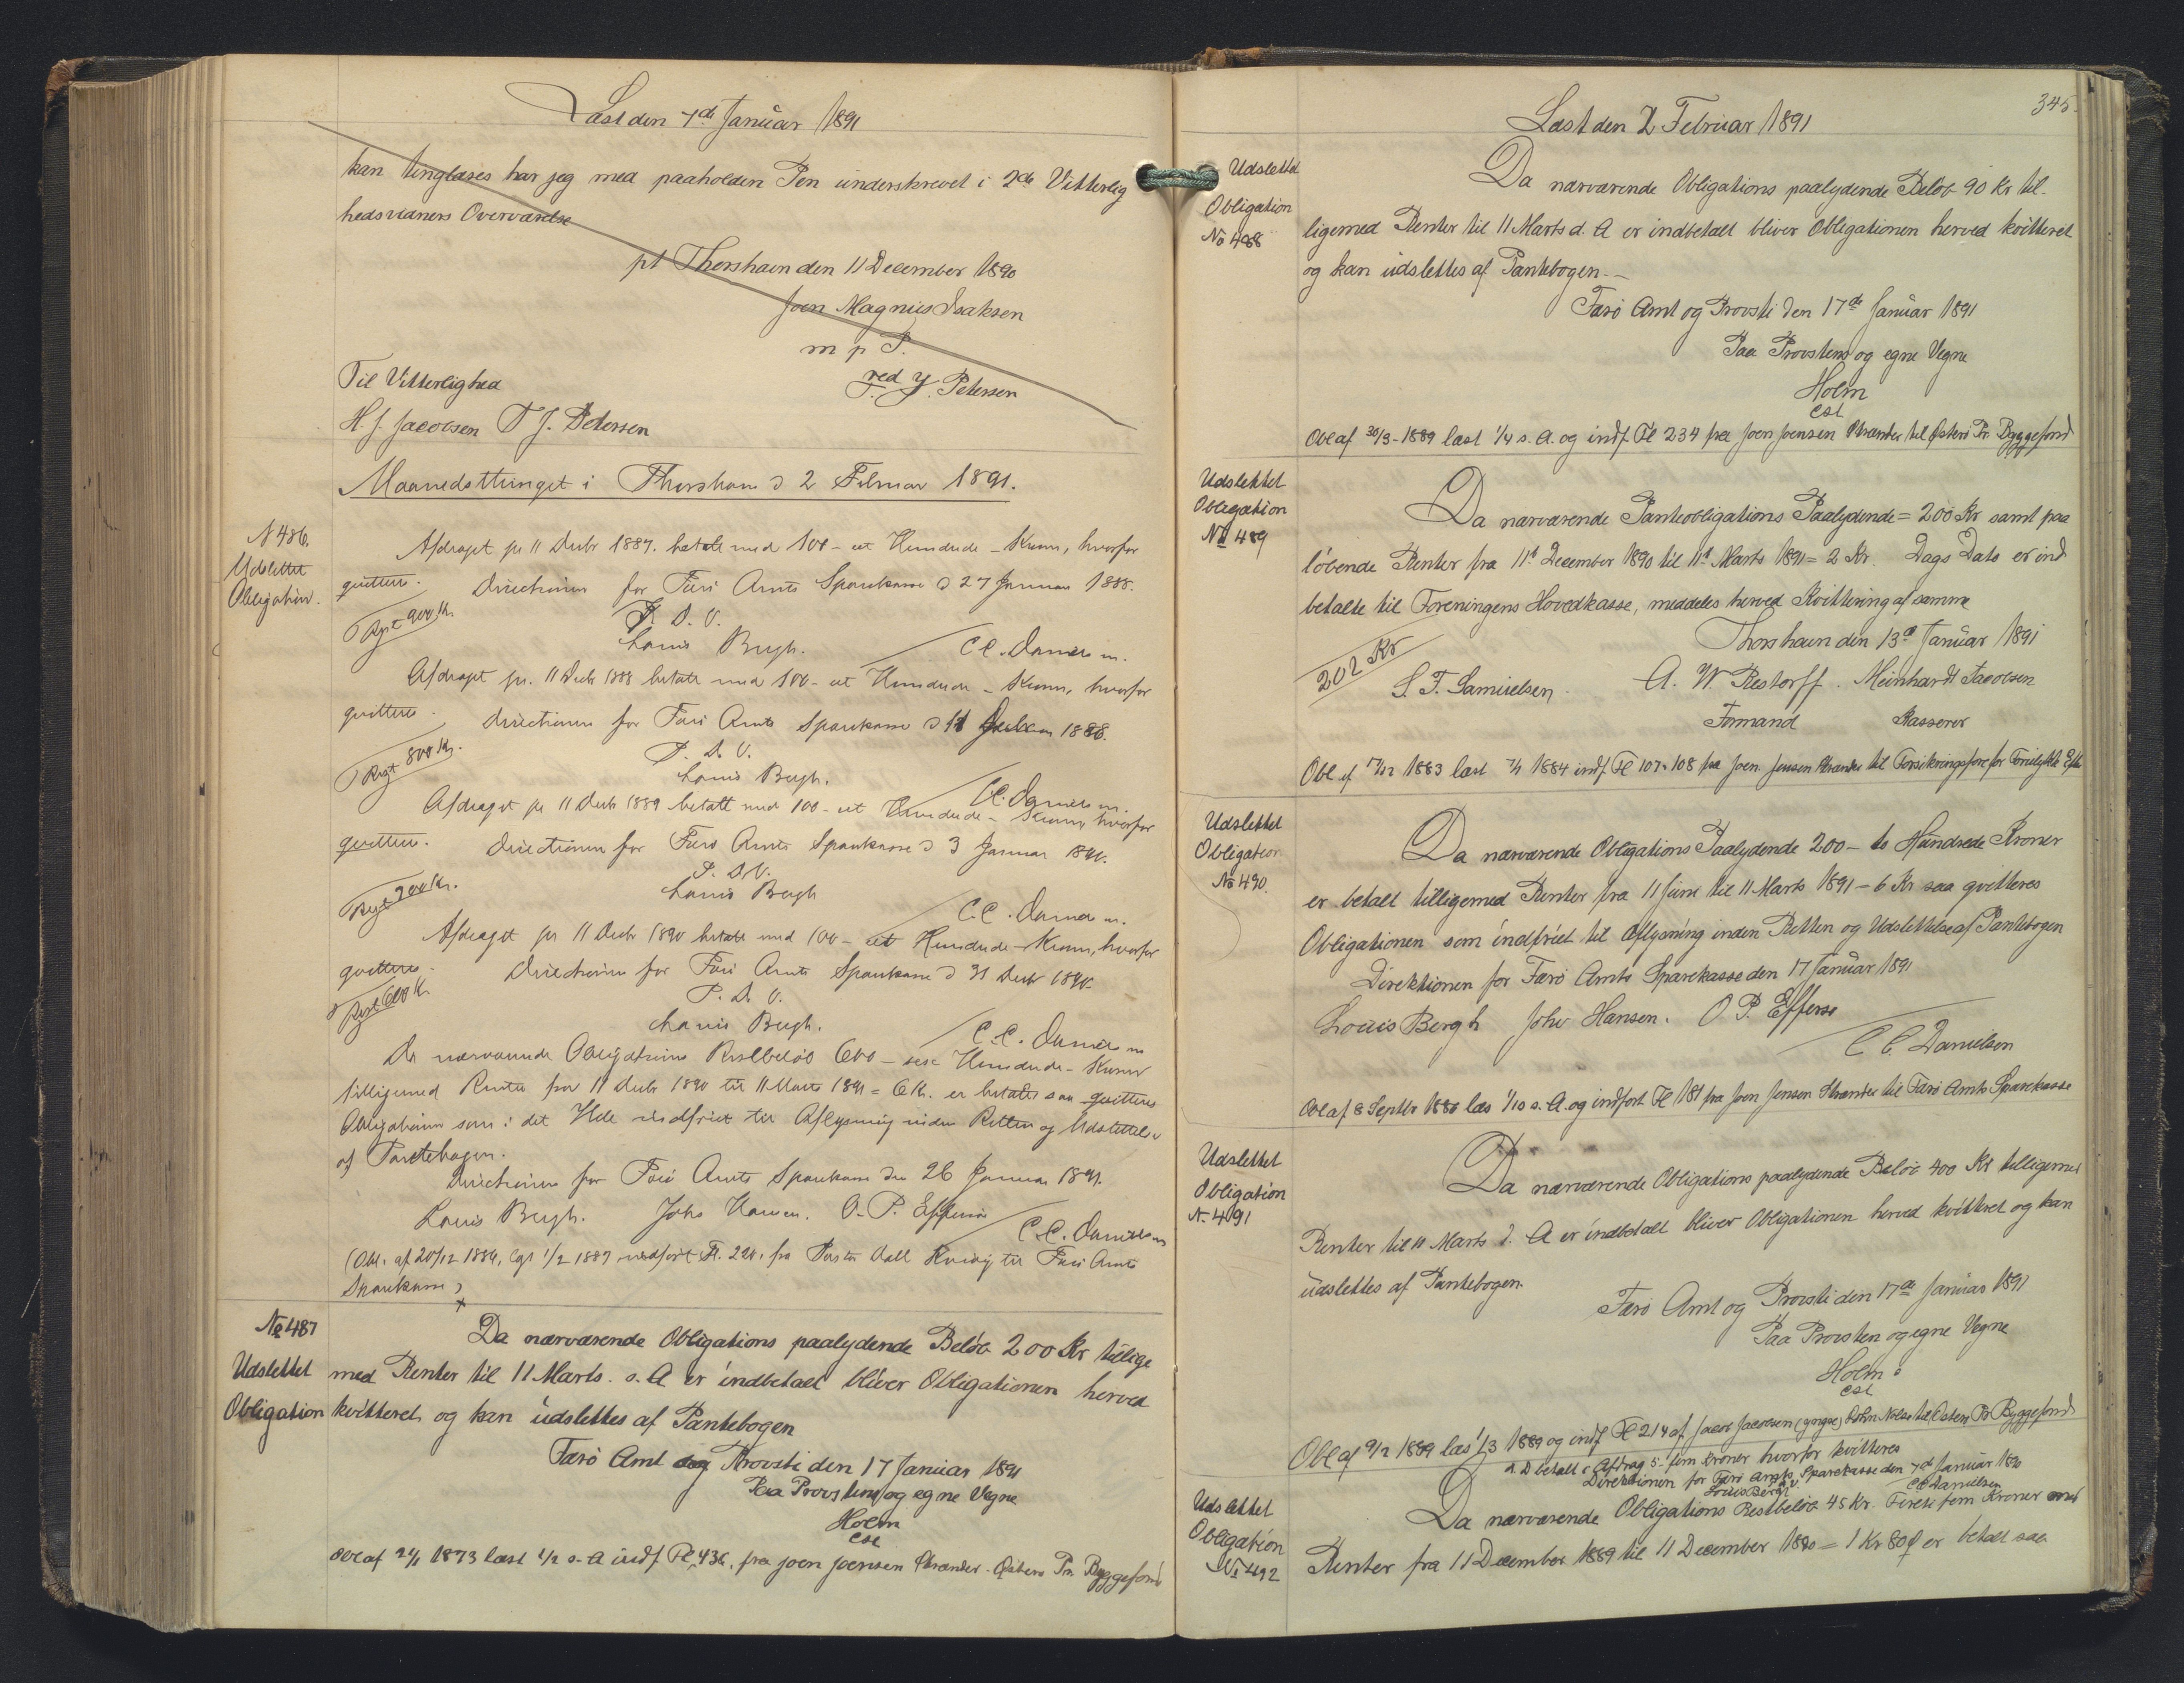 Læst den 7de Januar 1891
kan tinglæses har jeg med paaholden Pen underskrevet i 2de Vitterlig
hedsvidners Overværelse
pt Thorshavn den 11 December 1890
Joen Magnus Isaksen
m p P.
ved J. Petersen
Til Vitterlighed
H. J. Jacobsen T J. Petersen
Maanedsthinget i Thorshavn d 2 Februar 1891.
N 486.
Udslettet
Obligation.
Afdraget pr 11 Decbr 1887. betalt med 100 - et Hundrede - Kroner, hvorfor
quitteres. Directionen for Færø Amts Sparekasse d 27 Januar 1888.
Rest 900 Kr.
P. D. V.
Louis Bergh. C C. Danielsen.
Afdraget pr. 11 Decbr 1888 betalt med 100 - et Hundrede - Kroner, hvorfor
quitteres. Directionen for Færø Amts Sparekasse d 11 1888.
Rest 800 Kr.
P. D. V.
Louis Bergh.
C.C. Danielsen.
Afdraget pr 11 Decbr 1889 betalt med 100 - et Hundrede - Kroner, hvorfor
quitteres. Directionen for Færø Amts Sparekasse d 3 Januar 1890.
Rest 700 Kr.
P. D. V.
Louis Bergh
C.C. Danielsen.
Afdraget pr 11 Decbr 1890 betalt med 100 - et Hundrede - Kroner, hvorfor
quitteres. Directionen for Færø Amts Sparekasse d 31 Decbr 1890.
Rest 600 K.
P. D. V.
Louis Bergh.
C.C. Danielsen
Da nærværende Obligations Restbeløb 600 - sex Hundrede - Kroner
tilligemed Renter fra 11 Decbr 1890 til 11 Marts 1891 = 6 Kr. er betalt saa quitteres
Obligationen som i det Hele indfriet til Aflysning inden Retten og Udslettelse
af Pantebogen.
Directionen for Færø Amts Sparekasse den 26 Januar 1891.
Louis Bergh. Johs Hansen. O. P. Effersøe
C.C. Danielsen
(Obl. af 20/12 1886, lgt 1/2 1887, indført Fl. 220. fra til Færø Amts
Sparekasse)
No 487
Udslettet
Obligation
Da nærværende Obligations paalydende Beløb 200 Kr tillige
med Renter til 11 Marts. s. A er indbetalt bliver Obligationen herved
kvitteret og kan udslettes af Pantebogen
Færø Amt og Provsti den 17 Januar 1891
Paa Provstens og egne Vegne
Holm
cst
Obl af 24/1 1873 læst 1/2 s. A indf Fl 436, fra Joen Joensen Strænder - Østerø Pr. Byggefond
345.
Læst den 2 Februar 1891
Udslettet
Obligation
No 488
Da nærværende Obligations paalydende Beløb 90 Kr til-
ligemed Renter til 11 Marts d. A er indbetalt bliver Obligationen herved kvitteret
og kan udslettes af Pantebogen.
Færø Amt og Provsti den 17de Januar 1891
Paa Provstens og egne Vegne
Holm
cst
Obl af 30/3 - 1889 læst 1/4 s. A. og indf. Fl 234 fra Joen Joensen Strænder til Østerø Pr. Byggefond
Udslettet
Obligation
No 489
Da nærværende Panteobligations Paalydende = 200 Kr samt paa
løbende Renter fra 11te December 1890 til 11te Marts 1891 = 2 Kr. Dags Dato er ind
betalte til Foreningens Hovedkasse, meddeles herved Kvittering af samme
Thorshavn den 13de Januar 1891
202 Kr
S. F. Samuelsen. A. W. Restorff. Meinhardt Jacobsen
Formand Kasserer
Obl af 17/12 1883 læst 7/1 1884 indf Fl 107-108 fra Joen Joensen Strænder til Forsikringsfore for Forulykkede Efte
Udslettet
Obligation
No 490.
Da nærværende Obligations Paalydende 200 - to Hundrede Kroner
er betalt tilligemed Renter fra 11 Juni til 11 Marts 1891 - 6 Kr saa qvitteres
Obligationen som indfriet til Aflysning inden Retten og Udslettelse af Pantebogen
Direktionen for Færø Amts Sparekasse den 17 Januar 1891
Louis Bergh Johs Hansen. O. P. Effersø
C C. Danielsen
Obl af 8 Septbr 1880 læs 1/10 s. A. og indført Fl 181 fra Joen Jensen Strænder til Færø Amts Sparekasse
Udslettet
Obligation
N. 491
Da nærværende Obligations paalydende Beløb 400 Kr tilligemed
Renter til 11 Marts d. A er indbetalt bliver Obligationen herved kvitteret og kan
udslettes af Pantebogen.
Færø Amt og Provsti den 17de Januar 1891
Paa Provsten og egne Vegne
Holm
cst
Obl af 9/2 1889 læs 1/3 1889 og indf Fl 214 af Jacob Jacobsen (yngre) Nolsø til Østerø Pr Byggefond
A D betalt i Afdrag 5 - fem Kroner hvorfor kvitteres
Direktionen for Færø Amts Sparekasse den 7de Januar 1890
Louis Bergh CC Danielsen
Udslettet
Obligation
No 492
Da nærværende Obligations Restbeløb 45 Kr. Fireti fem Kroner med
Renter fra 11 December 1889 til 11 December 1890 = 1 Kr 80 Ø er betalt saa